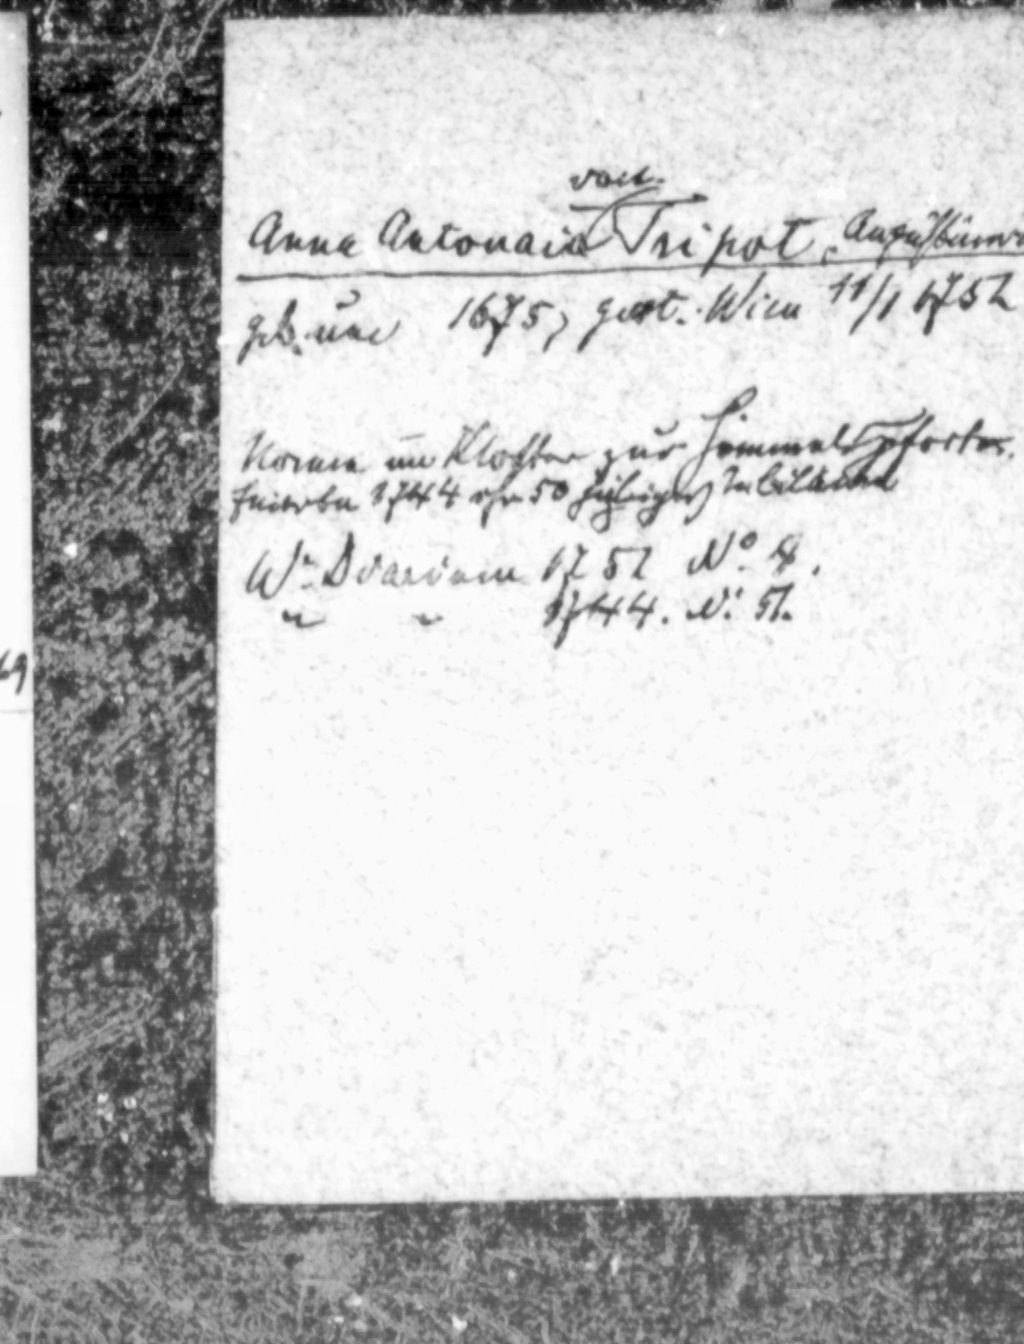 von
Anna Antonaia Tripot, Augustinerin
geb. um 1675, gest. Wien 11/1 1752
Nonne im Kloster zur Himmelspforte.
Feierte 1744 ihr 50 jähriges Jubiläum
Wr. Diarium 1752 No. 4.
" " 1744. No. 51.
69